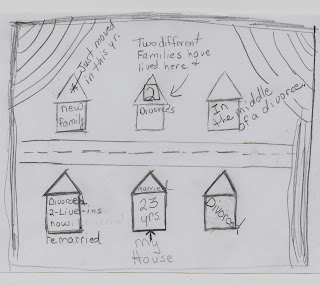 * Just moved
in this yr.
new
family
Two different
Families have
lived here +
2
Divorces
In
the middle
of a divorce
Divorced
2-Live-ins
now
remarried
Married
23
yrs.
my
House
Divorce